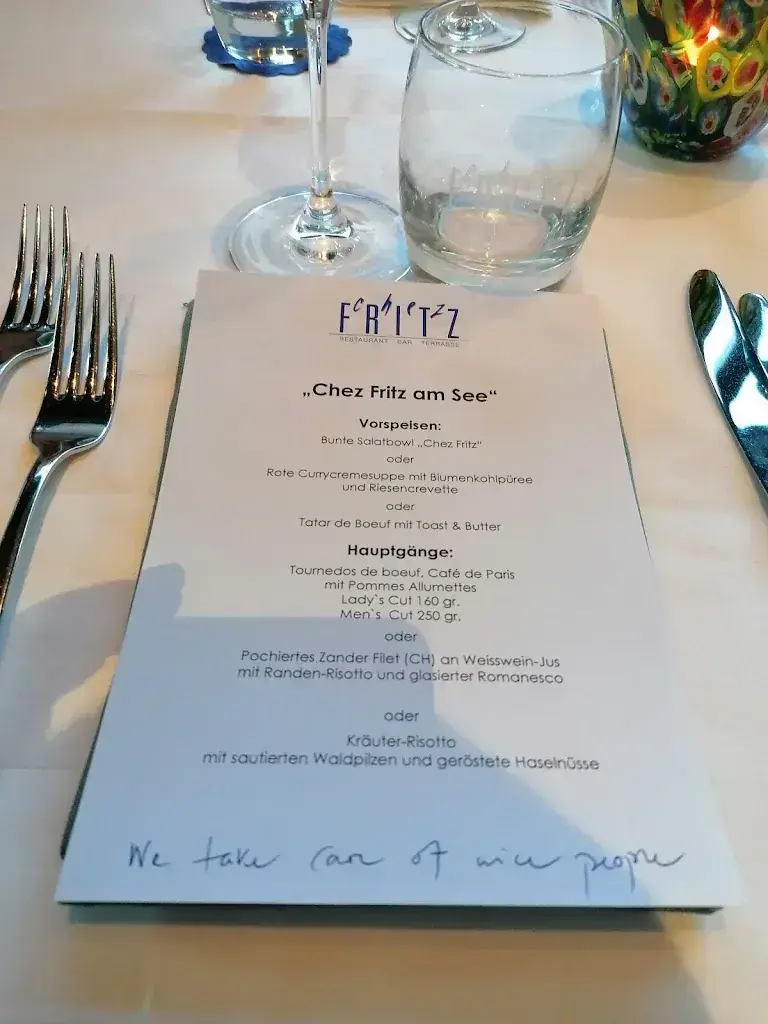 Chez
FRITZ
RESTAURANT BAR TERRASSE
„Chez Fritz am See“
Vorspeisen:
Bunte Salatbowl „Chez Fritz“
oder
Rote Currycremesuppe mit Blumenkohlpüree
und Riesencrevette
oder
Tatar de Boeuf mit Toast & Butter
Hauptgänge:
Tournedos de boeuf, Café de Paris
mit Pommes Allumettes
Lady`s Cut 160 gr.
Men`s Cut 250 gr.
oder
Pochiertes Zander Filet (CH) an Weisswein-Jus
mit Randen-Risotto und glasierter Romanesco
oder
Kräuter-Risotto
mit sautierten Waldpilzen und geröstete Haselnüsse
We take care of nice people